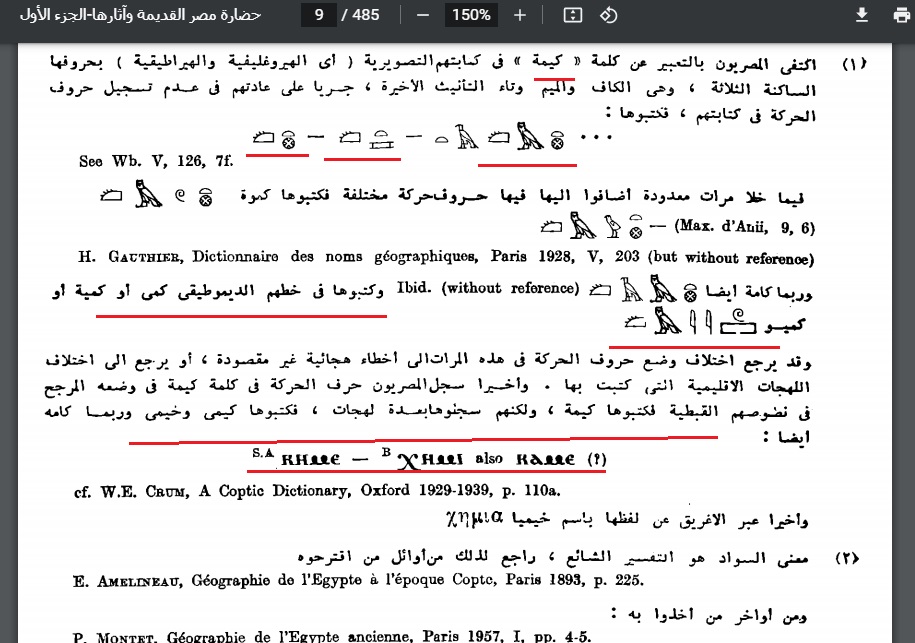 حضارة مصر القديمة وآثارها-الجزء الأول
9 / 485 150%
(١) اكتفى المصريون بالتعبير عن كلمة « كيمة » فى كتابتهم التصويرية ( أى الهيروغليفية والهيراطيقية ) بحروفها
الساكنة الثلاثة ، وهى الكاف والميم وتاء التأنيث الأخيرة ، جريا على عادتهم فى عدم تسجيل حروف
الحركة فى كتابتهم ، فكتبوها :
See Wb. V, 126, 7f.
فيما خلا مرات معدودة أضافوا اليها فيها حروف حركة مختلفة فكتبوها كموة
— (Max. d'Anii, 9, 6)
H. GAUTHIER, Dictionnaire des noms géographiques, Paris 1928, V, 203 (but without reference)
وربما كامة أيضا Ibid. (without reference) وكتبوها فى خطهم الديموطيقى كمى أو كمية أو
كميو
وقد يرجع اختلاف وضع حروف الحركة فى هذه المرات الى أخطاء هجائية غير مقصودة ، أو يرجع الى اختلاف
اللهجات الاقليمية التى كتبت بها . وأخيرا سجل المصريون حرف الحركة فى كلمة كيمة فى وضعه المرجح
فى نصوصهم القبطية فكتبوها كيمة ، ولكنهم سجلوها بعدة لهجات ، فكتبوها كيمى وخيمى وربما كامه
أيضا :
S.A ⲕⲏⲙⲉ — B ⲭⲏⲙⲓ also ⲕⲁⲙⲉ (?)
cf. W.E. CRUM, A Coptic Dictionary, Oxford 1929-1939, p. 110a.
وأخيرا عبر الاغريق عن لفظها باسم خيميا χημια
(٢) معنى السواد هو التفسير الشائع ، راجع لذلك من أوائل من اقترحوه
E. AMELINEAU, Géographie de l'Egypte à l'époque Copte, Paris 1893, p. 225.
ومن أواخر من أخذوا به :
P. MONTET, Géographie de l'Egypte ancienne, Paris 1957, I, pp. 4-5.